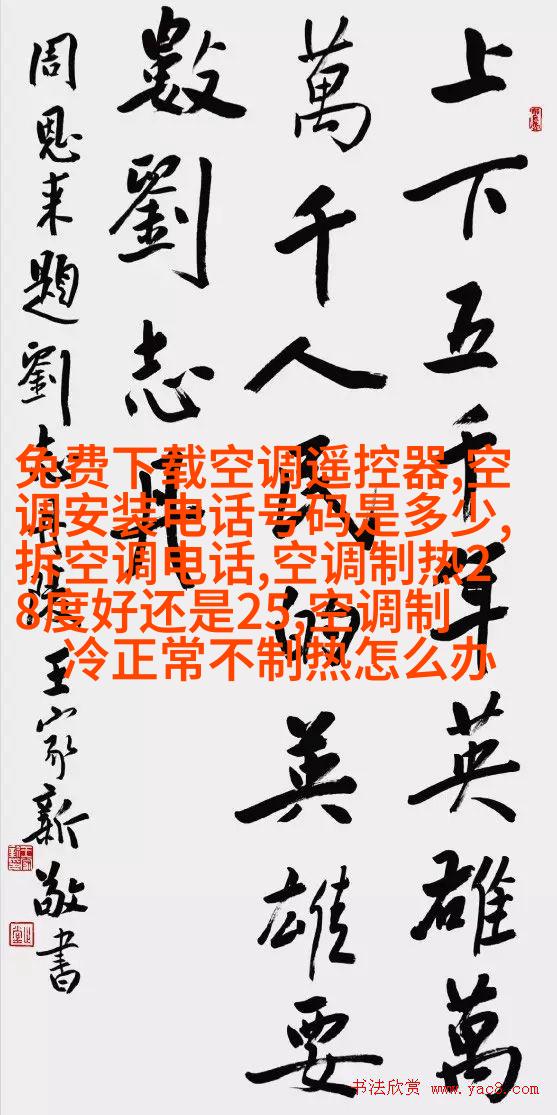 上下五千年英雄萬
萬千人民的英雄要
數劉志丹
周恩来題劉志丹王家新敬書
免费下载空调遥控器,空
调安装电话号码是多少,
拆空调电话,空调制热2
8度好还是25,空调制
冷正常不制热怎么办
书法欣赏 www.yac8.com